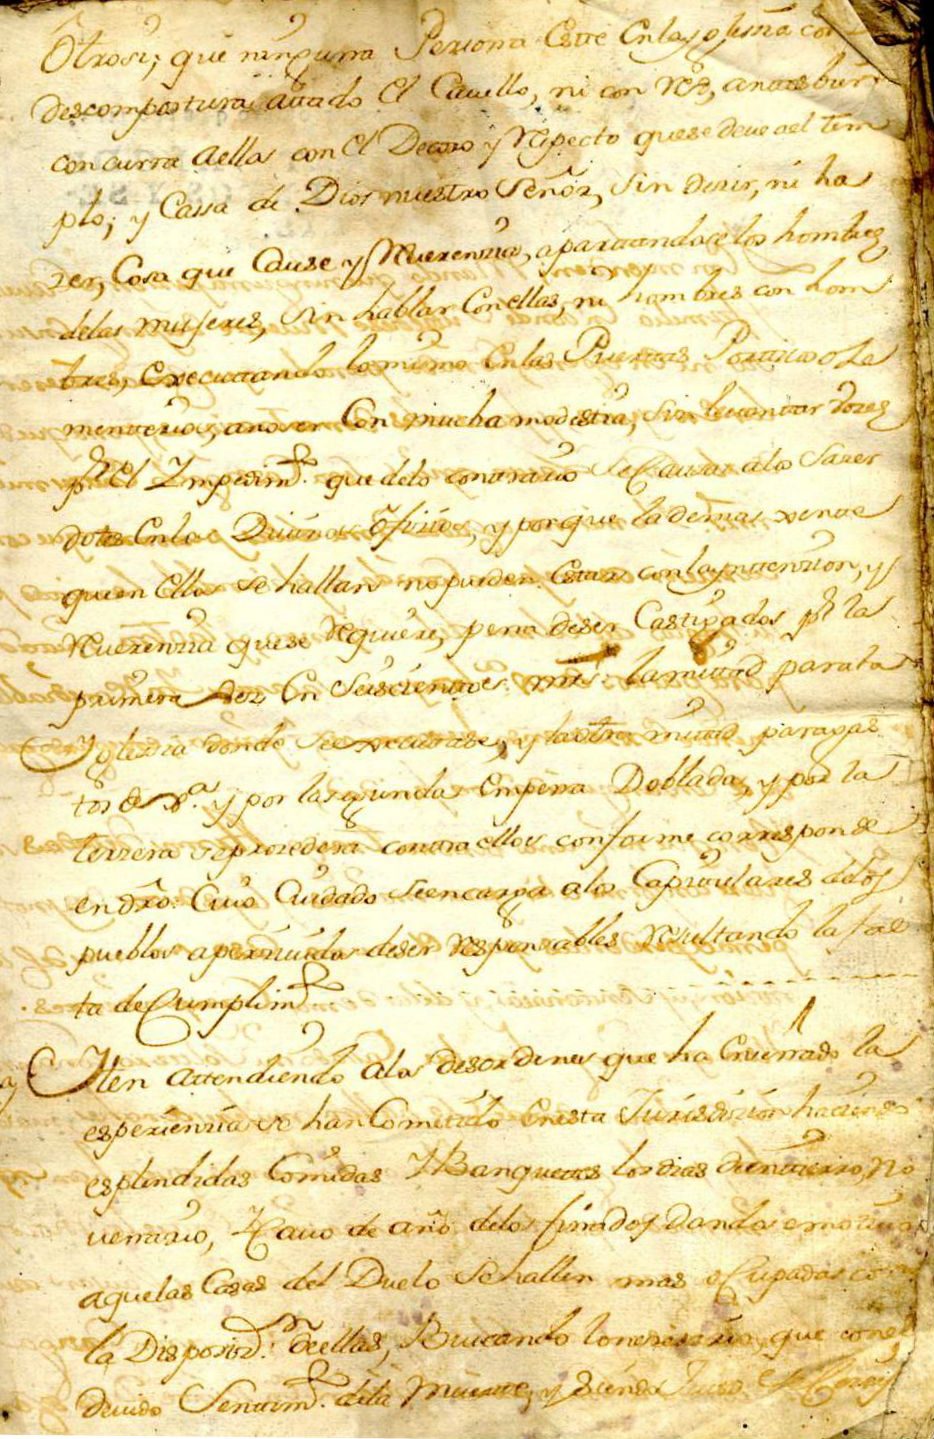 Otrosi; que ninguna Persona Este En la Yglesia con
descompostura atado el Cavello, ni con
concurra aella con el Decoro y Respecto quese deve ael tem
plo; y Cassa de Dios nuestro Señor, Sin desir, ni ha
zer, Cosa que Cause Yrreverenzia, apartandose los hombres
delas mujeres, Sin hablar Con ellas, ni hombres con hom
bres, Executando lo mismo En las Puertas Porticos o Se
menterios, Con mucha modestia, Sin levantar vozes
pr El Impedimto. que delo contrario Se Causa alos Sazer
dotes En los Divinos ofizios, y porque la demas xente
que en Ella se hallan no pueden Estar con la yntenzion, y
Reverenzia que se Requiere, pena deser Castigados pr la
primera vez En Seiscientos mrs. la mitad para la
Yglesia donde Se executase, y la otra mitad para gas
tos de Va. y por la segunda En pena Doblada, y por la
terzera se prozedera contra ellos conforme corresponde
en dro. Cuio Cuidado se encarga alos Capitulares delos
pueblos apercividos deser Responsables Resultando la fal
ta de Cumplimto.
Yten attendiendo alos desordenes que ha Enseñado la
esperienzia se han Cometido En esta Jurisdizion haciendo
esplendidas Comidas Y Banquetes los dias de entierro, No
venario, Y Cavo de año delos finados dando motivo
aquelas Casas del Duelo Se hallen mas ocupadas con
la Disposizn. de ellas, Buscando lo nezesario, que con el
devido Sentimto. dela Muerte, y Siendo